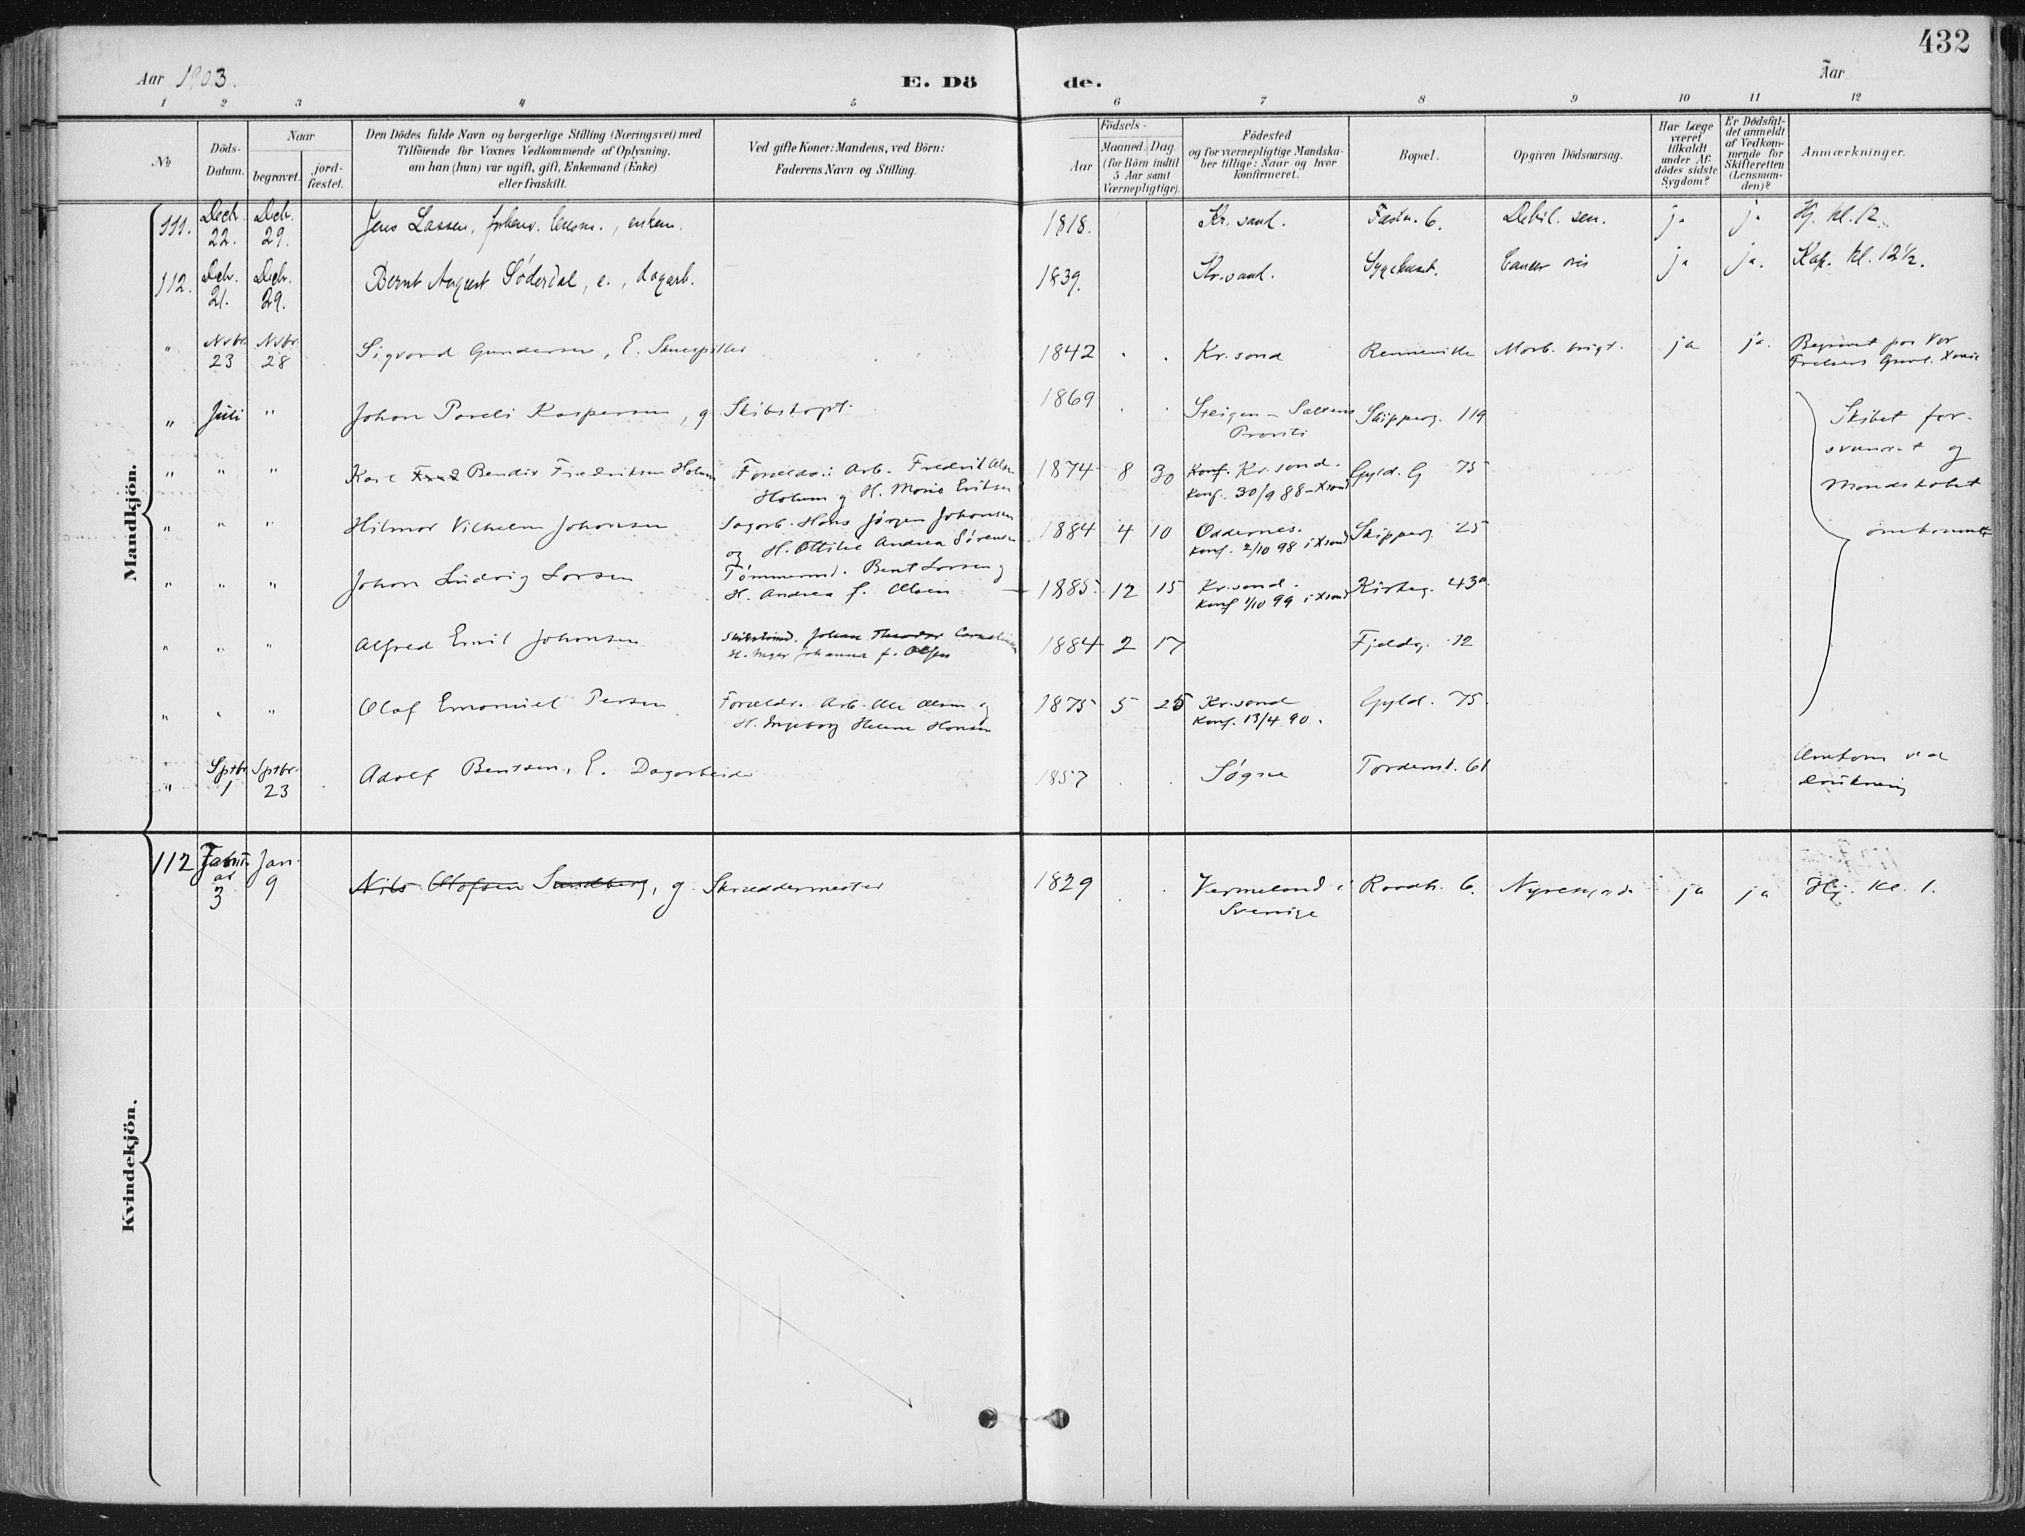 432
Aar 1903.
E. Dö de.
Aar
1 2 3 4 5 6 7 8 9 10 11 12
No
Döds-Datum.
Naar
begravet.
jord-fæstet.
Den Dödes fulde Navn og borgerlige Stilling (Næringsvei) med
Tilföiende for Voxnes Vedkommende af Oplysning,
om han (hun) var ugift, gift, Enkemand (Enke)
eller fraskilt.
Ved gifte Koner: Mandens, ved Börn:
Faderens Navn og Stilling.
Födsels-
Aar
Maaned. Dag
(for Börn indtil
5 Aar samt
Værnepligtige).
Födested
og for værnepligtige Mandska-
ber tillige: Naar og hvor
Konfirmeret.
Bopæl.
Opgiven Dödsaarsag.
Har Læge
været
tilkaldt
under Af-
dödes sidste
Sygdom?
Er Dödsfal-
det anmeldt
af Vedkom-
mende for
Skifteretten
(Lensman-
den)?
Anmærkninger.
Mandkjön.
111. Decb. 22. Decb. 29. Jens Lassen, enkem. 1818. Kr.sand. Festn. 6. Debil. sen. ja ja Hj. kl. 12.
112. Decb. 21. Decb. 29. Bernt August Söderdal, e., dagarb. 1839. Kr.sand. Sygehuset. Cancer ja ja. Kap. kl. 12½.
" Nvbr. 23 Nvbr. 28 Sigvard Gundersen, E. Skuespiller 1842 . . Kr.sand Morb. ja ja. Begravet paa Vor
Frelsers Gravl. Xania
" Juli " Johan Pareli Kaspersen, g. Skibskapt. 1869 . . Steigen - Saltens
Provsti Skipperg. 119
Skibet for-
svundet og
Mandskabet
omkommet
" " " Karl Bendix Fredriksen Holum Forældre: Arb. Fredrik Olsen
Holum og H. Marie Eriksen 1874 8 30 Konf. Kr.sand.
Konf. 30/9 88 - Xsand Gyld. G 75
" " " Hilmar Vilhelm Johansen Sagarb. Hans Jørgen Johansen
og H. Ottilie Andrea Sørensen 1884 4 10 Oddernes.
Konf. 2/10 98 i Xsand Skipperg. 25
" " " Johan Ludvig Larsen Tømmermd. Bent Larsen og
H. Andrea f. Olsen 1885. 12 15 Kr.sand.
Konf 1/10 99 i Xsand Kirkeg. 43
" " " Alfred Emil Johansen Johan Theodor Cornelius
H. Inger Johanne f. Olsen 1884 2 17 Fjeldg. 12
" " " Olaf Emanuel Persen Forældr. Arb. Ole Olsen og
H. Ingeborg Helene Hansen 1875 5 25 Kr.sand
Konf. 13/4 90. Gyld. 75.
" Sptbr. 1 Sptbr. 23 Adolf Bentsen, E. Dagarbeider 1857 . . Søgne Tordenst. 61 Omkom ved
drukning
Kvindekjön.
112 3 Jan. 9 Nils Olofsen Sundberg, g. Skræddermester 1829 . . Vermeland i
Sverige Raadh. 6. Nyresygd. ja ja Hj. Kl. 1.